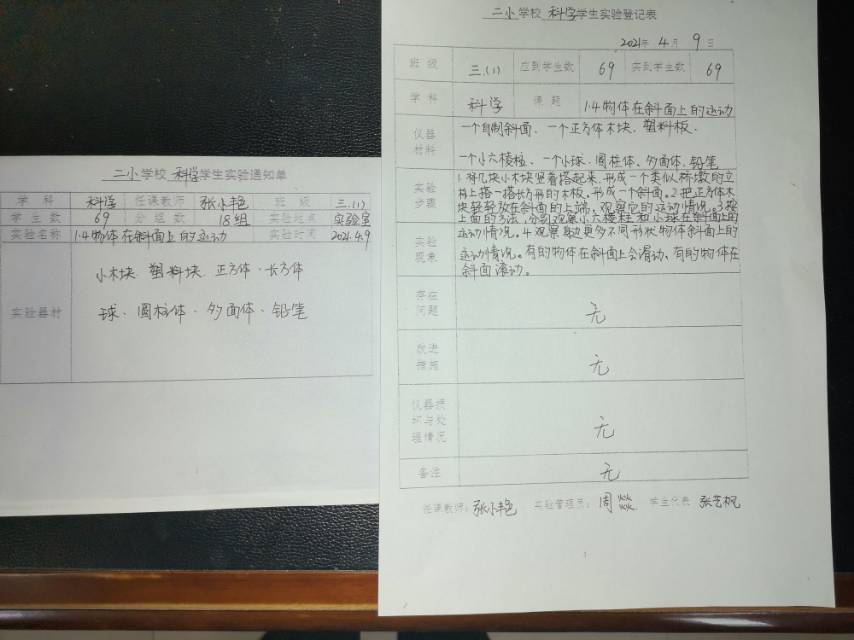 二小学校 科学学生实验通知单
学科 科学 任课教师 张小艳 班级 三.(1)
学生数 69 分组数 18组 实验地点 实验室
实验名称 1.4物体在斜面上的运动 实验时间 2021.4.9
实验器材
小木块 塑料块 正方体·长方体
球·圆柱体·多面体·铅笔
二小学校 科学学生实验登记表
2021年 4月 9日
班级 三.(1) 应到学生数 69 实到学生数 69
学科 科学 课题 1.4物体在斜面上的运动
仪器材料
一个自制斜面、一个正方体木块、塑料板、
一个小六棱柱、一个小球、圆柱体、多面体、铅笔
实验步骤
1.将几块小木块竖着搭起来,形成一个类似桥墩的立
柱上搭一搭长方形的木板,形成一个斜面。2.把正方体木
块轻轻放在斜面的上端,观察它的运动情况。3.按
上面的方法,分别观察小六棱柱和小球在斜面上的
运动情况。4.观察身边更多不同形状物体斜面上的
实验现象
运动情况。有的物体在斜面上会滑动、有的物体在
斜面滚动。
存在问题 无
改进措施 无
仪器损坏与处理情况 无
备注 无
任课教师:张小艳 实验管理员:周焱焱 学生代表 张艺枫